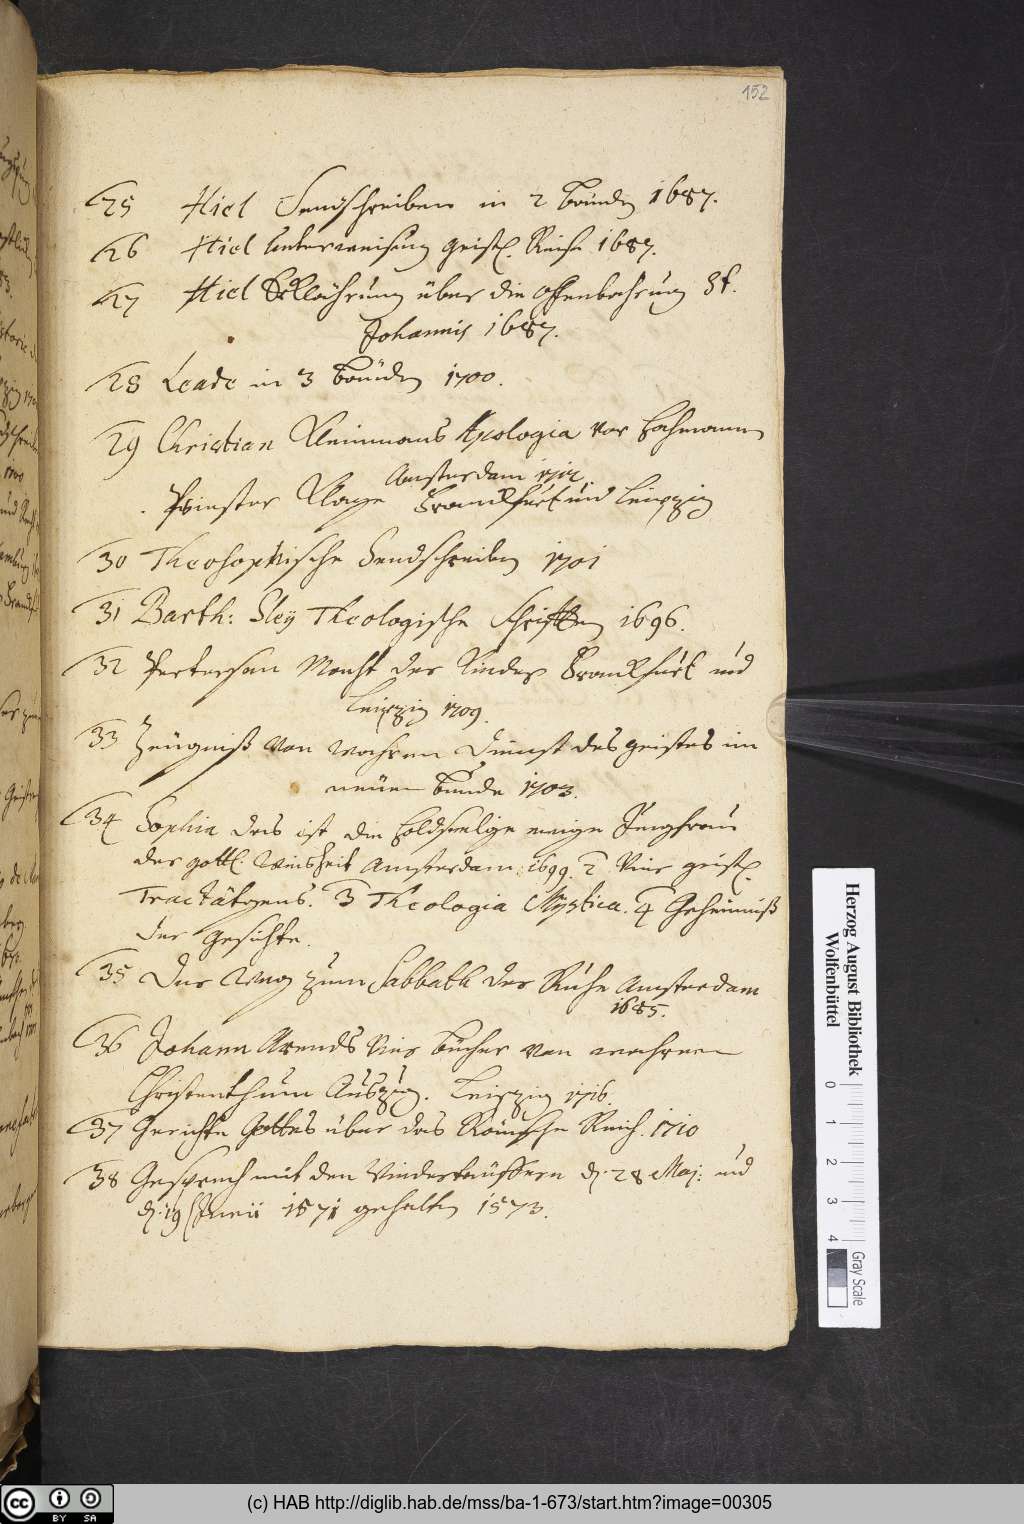 152
25 Hiel Sendschreiben in 2 bünden 1687.
26 Hiel Unterweisung geistl. Reiche 1687.
27 Hiel Erklährung über die Offenbahrung St.
Johannis 1687.
28 Leade in 3 bänden 1700.
29 Christian Kleinmans Apologia vor
Amsterdam
Priester Klage Franckfurt und Leipzig
30 Theosophische Sendschreiben 1701
31 Barth: Sley Theologische Schrifften 1696.
32 Petersen Macht der Kinder Franckfurt und
Leipzig 1709.
33 Zeugniß von wahren Dienst des geistes im
neüen bunde 1703.
34 Sophia das ist die holdseelige ewige Jungfrau
der göttl. Weisheit Amsterdam: 1699. 2 Vier geistl.
Tractätgens. 3 Theologia Mystica. 4 Geheimniß
der Gesichte.
35 Der Weg zum Sabbath der Ruhe Amsterdam
1685.
36 Johann Arends vier bücher von wahren
Christenthum Auszug. Leipzig 1716.
37 Gerichte Gottes über das Römische Reich. 1710
38 Gespräch mit den Wiedertäuffern d. 28 Maj: und
d. 19 Junii 1571 gehalten 1573.
Herzog August Bibliothek
Wolfenbüttel
0 1 2 3 4
Gray Scale
(c) HAB http://diglib.hab.de/mss/ba-1-673/start.htm?image=00305
cc BY SA